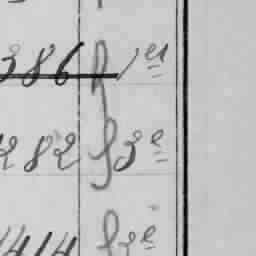 386 f 1er
282 f 3e
414 f 2e